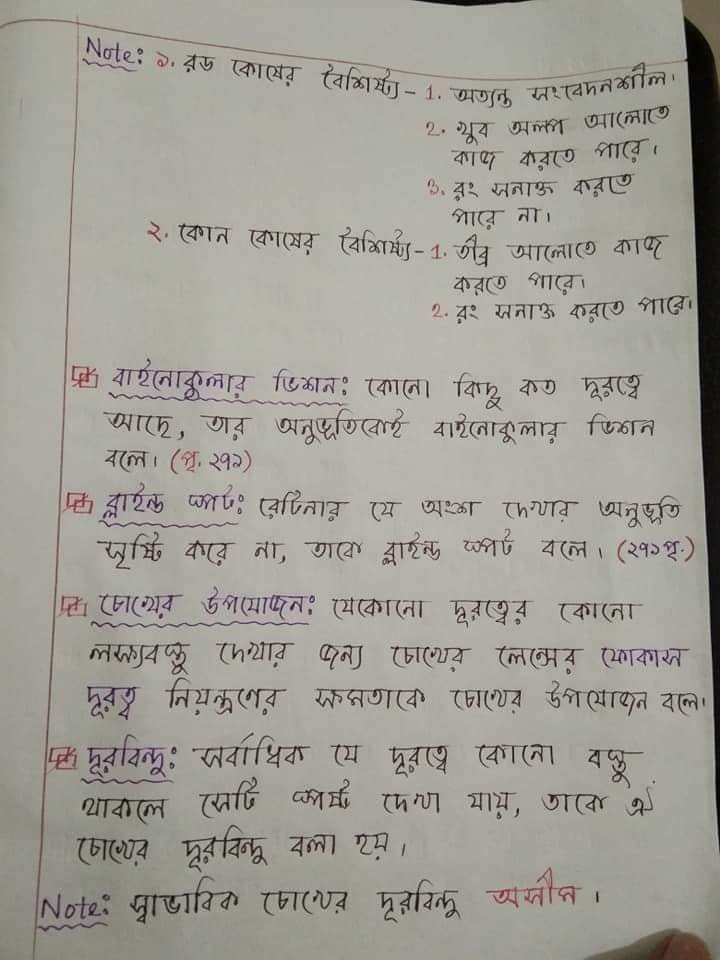 Note: ১. রড কোষের বৈশিষ্ট্য - 1. অত্যন্ত সংবেদনশীল।
2. খুব অল্প আলোতে
কাজ করতে পারে।
3. রং সনাক্ত করতে
পারে না।
২. কোন কোষের বৈশিষ্ট্য - 1. তীব্র আলোতে কাজ
করতে পারে।
2. রং সনাক্ত করতে পারে।
বাইনোকুলার ভিশন: কোনো কিছু কত দূরত্বে
আছে, তার অনুভূতিকেই বাইনোকুলার ভিশন
বলে। (পৃ. ২৭১)
ব্লাইন্ড স্পট: রেটিনার যে অংশ দেখার অনুভূতি
সৃষ্টি করে না, তাকে ব্লাইন্ড স্পট বলে। (২৭১পৃ.)
চোখের উপযোজন: যেকোনো দূরত্বের কোনো
লক্ষ্যবস্তু দেখার জন্য চোখের লেন্সের ফোকাস
দূরত্ব নিয়ন্ত্রণের ক্ষমতাকে চোখের উপযোজন বলে।
দূরবিন্দু: সর্বাধিক যে দূরত্বে কোনো বস্তু
থাকলে সেটি স্পষ্ট দেখা যায়, তাকে ঐ
চোখের দূরবিন্দু বলা হয়।
Note: স্বাভাবিক চোখের দূরবিন্দু অসীম।